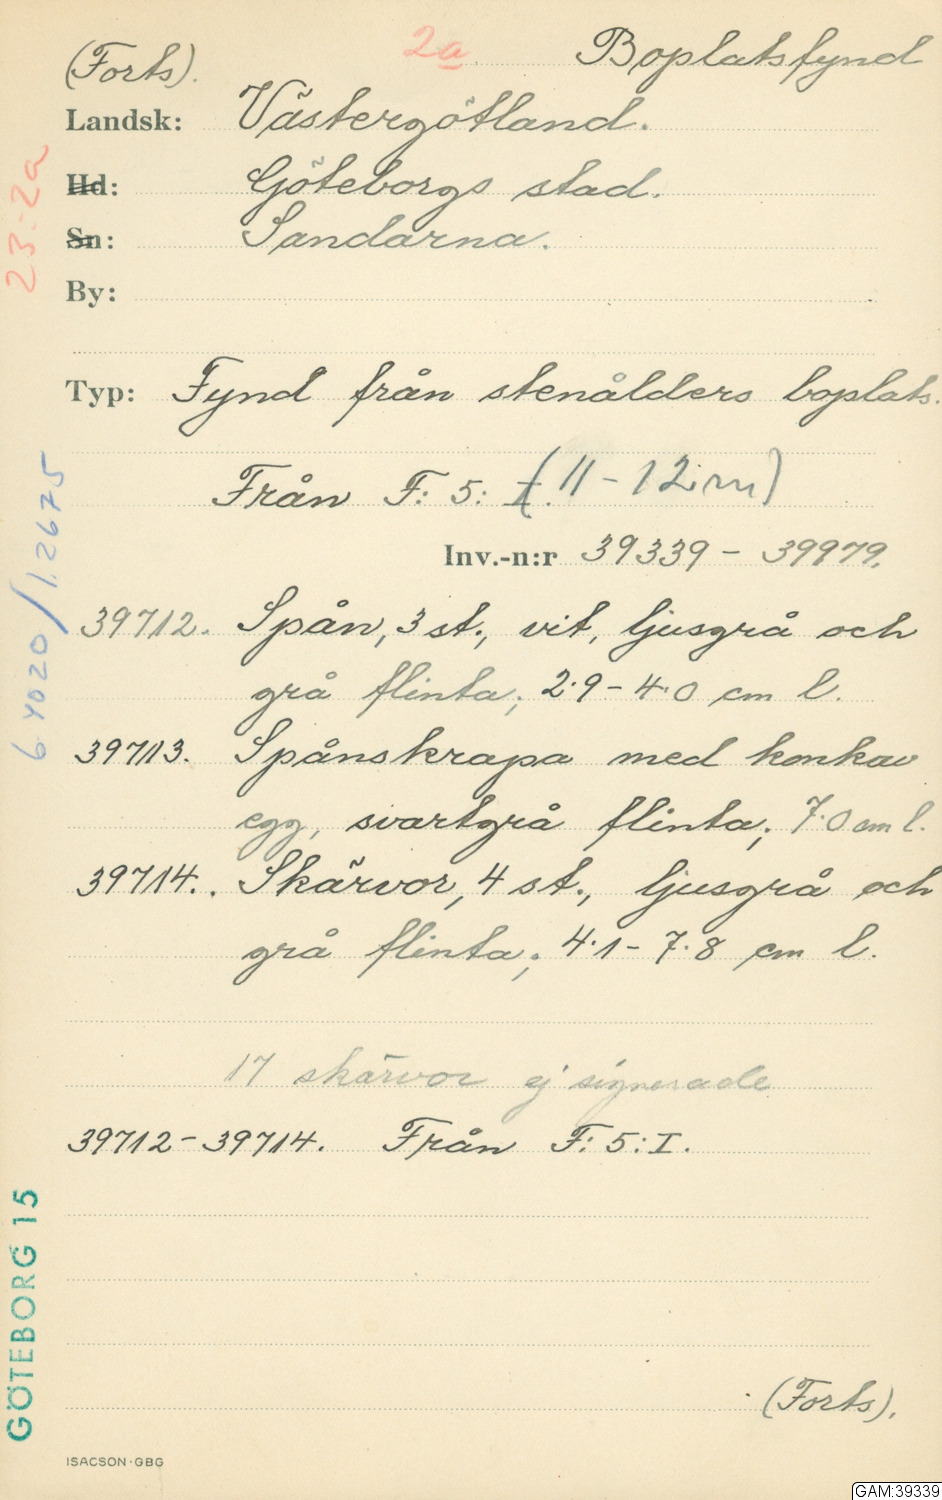 (Forts).
2a
Boplatsfynd
Landsk: Västergötland.
Hd: Göteborgs stad.
Sn: Sandarna.
By:
Typ: Fynd från stenålders boplats.
Från F: 5: I. (11-12 m)
Inv.-n:r 39339 - 39979.
39712. Spån, 3 st., vit, ljusgrå och
grå flinta; 2.9 - 4.0 cm l.
39713. Spånskrapa med konkav
egg, svartgrå flinta; 7.0 cm l.
39714. Skärvor, 4 st., ljusgrå och
grå flinta; 4.1 - 7.8 cm l.
17 skärvor ej signerade
39712-39714. Från F: 5: I.
(Forts).
ISACSON·GBG
23-2a
6.4020/1.2675
GÖTEBORG 15
GAM:39339